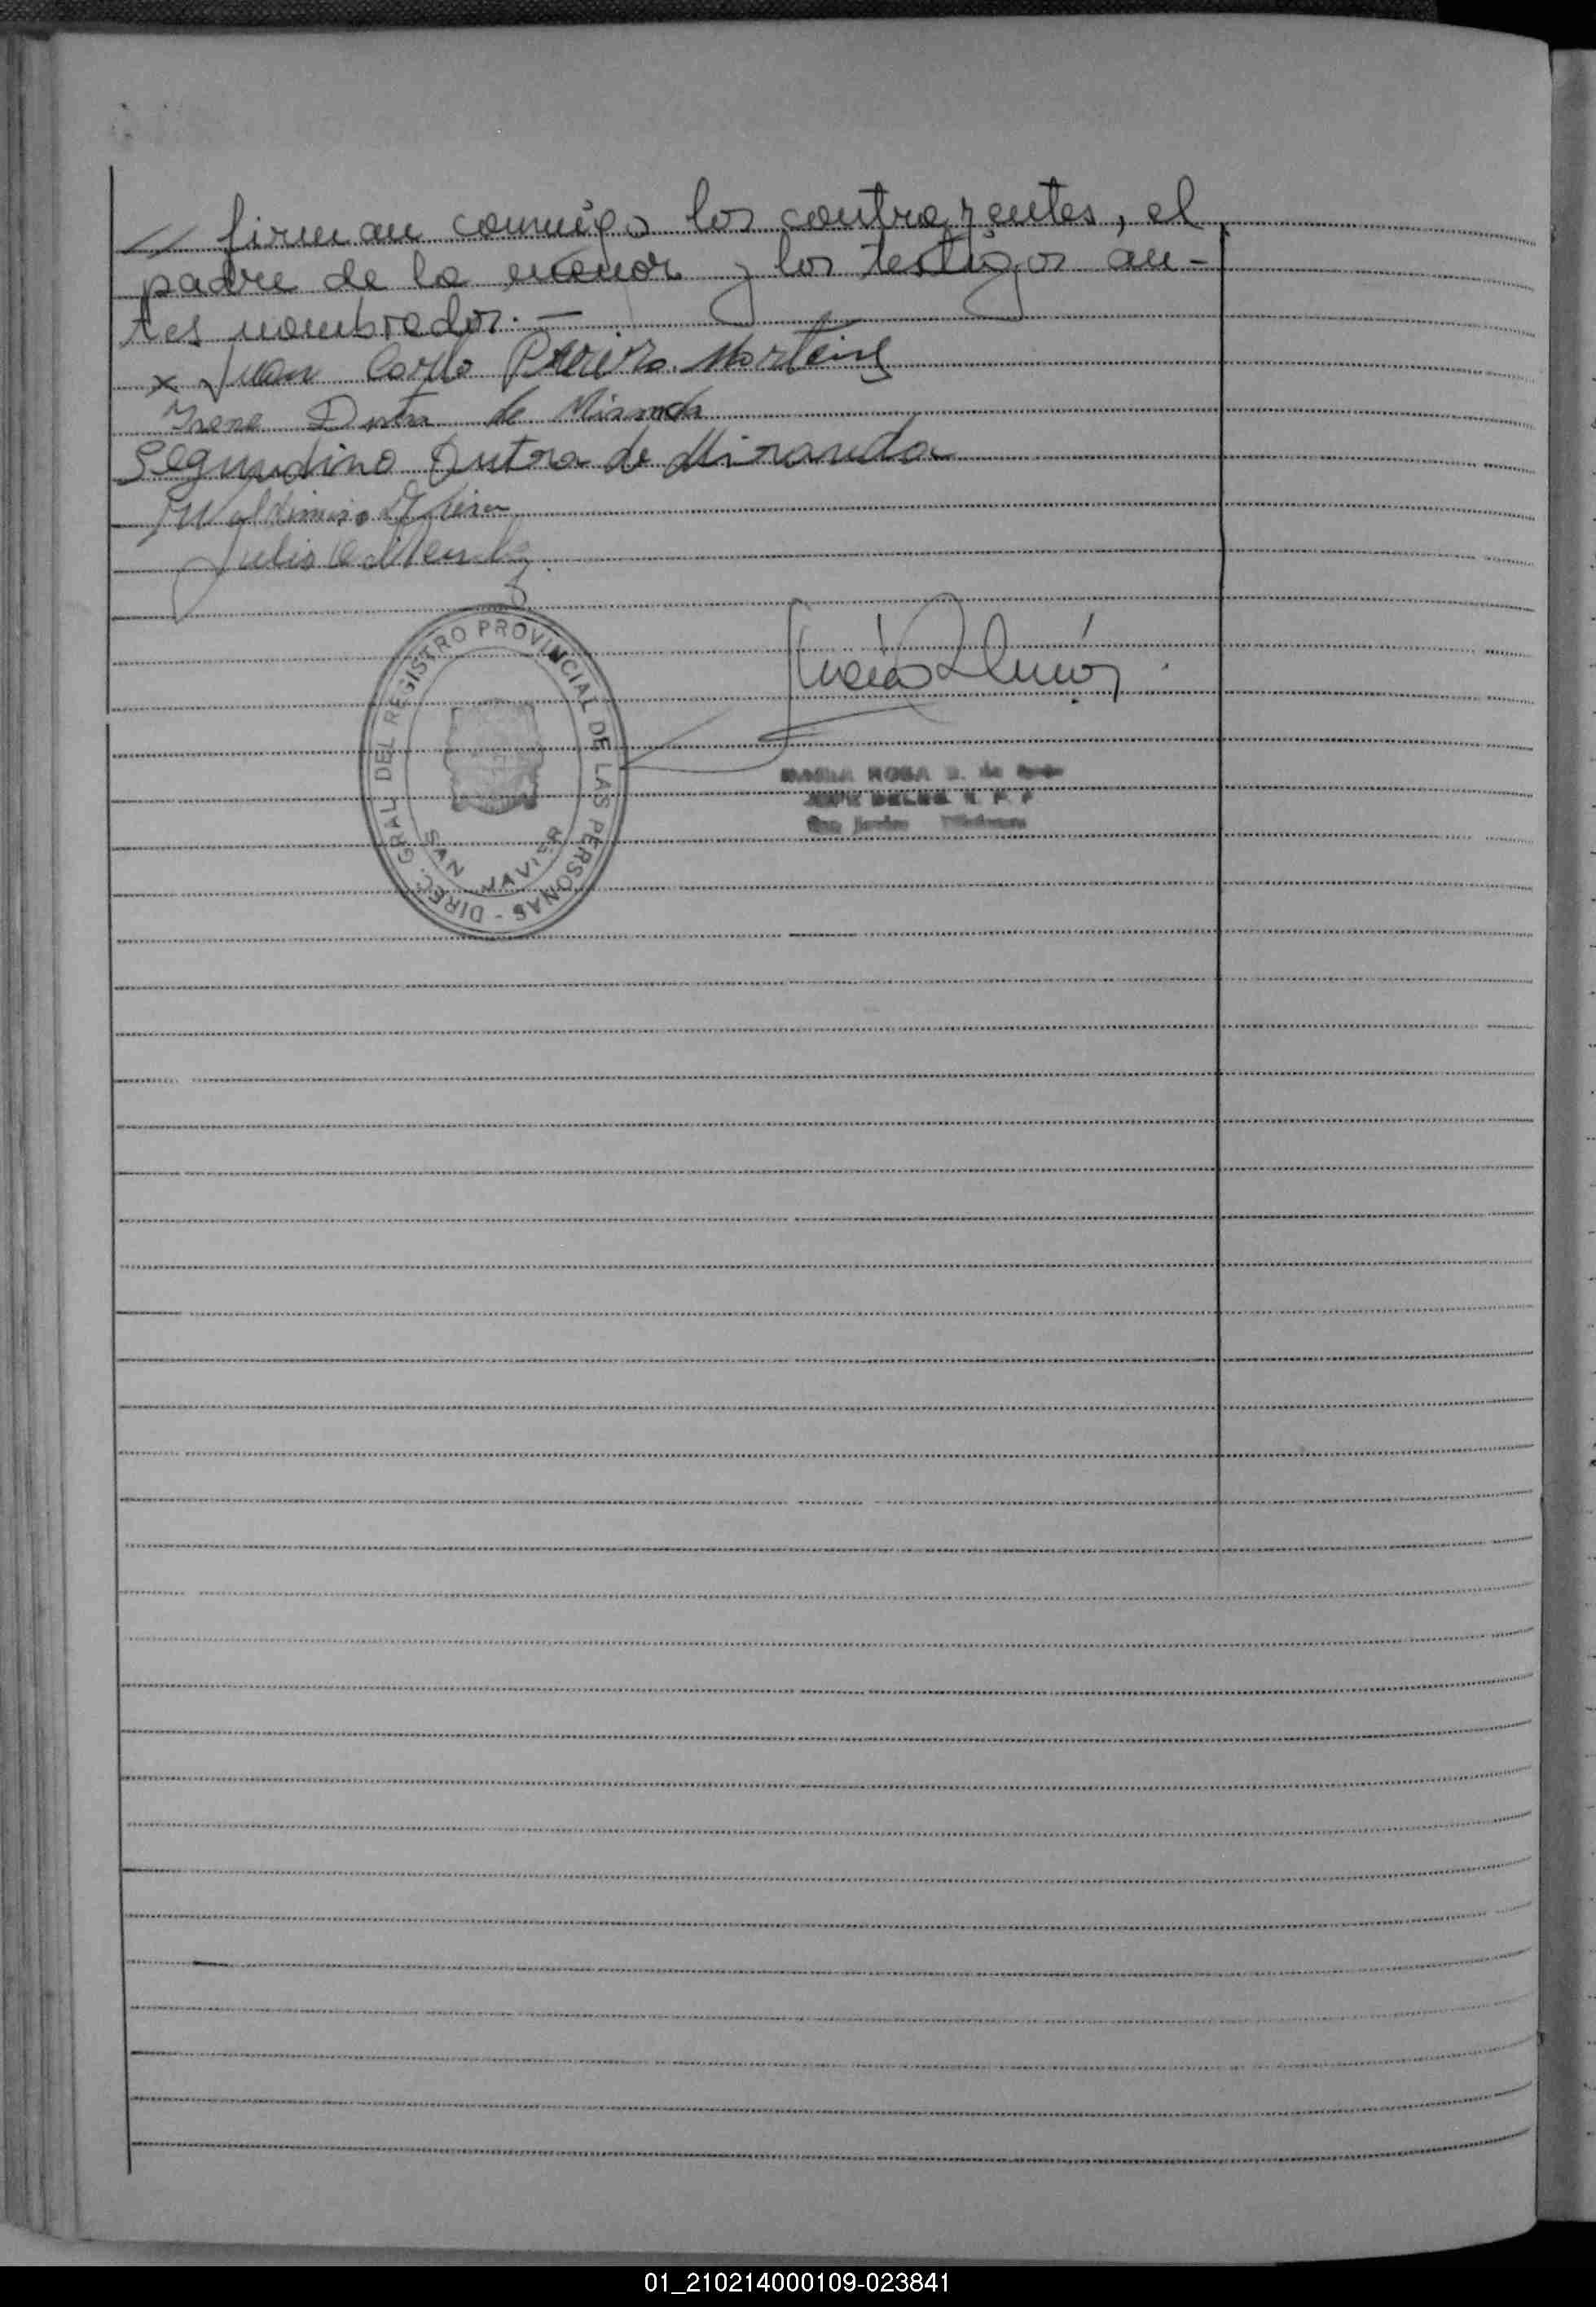 // firman conmigo los contrayentes, el
padre de la menor y los testigos an-
tes nombrados. —
x Juan Carlo Pereira Martins
Irene Dutra de Miranda
Segundino Dutra de Miranda
Julio
DIREC. GRAL. DEL REGISTRO PROVINCIAL DE LAS PERSONAS -
SAN JAVIER
MARIA ROSA de
JEFE DELEG. R. P. P
San Javier Misiones
01_210214000109-023841